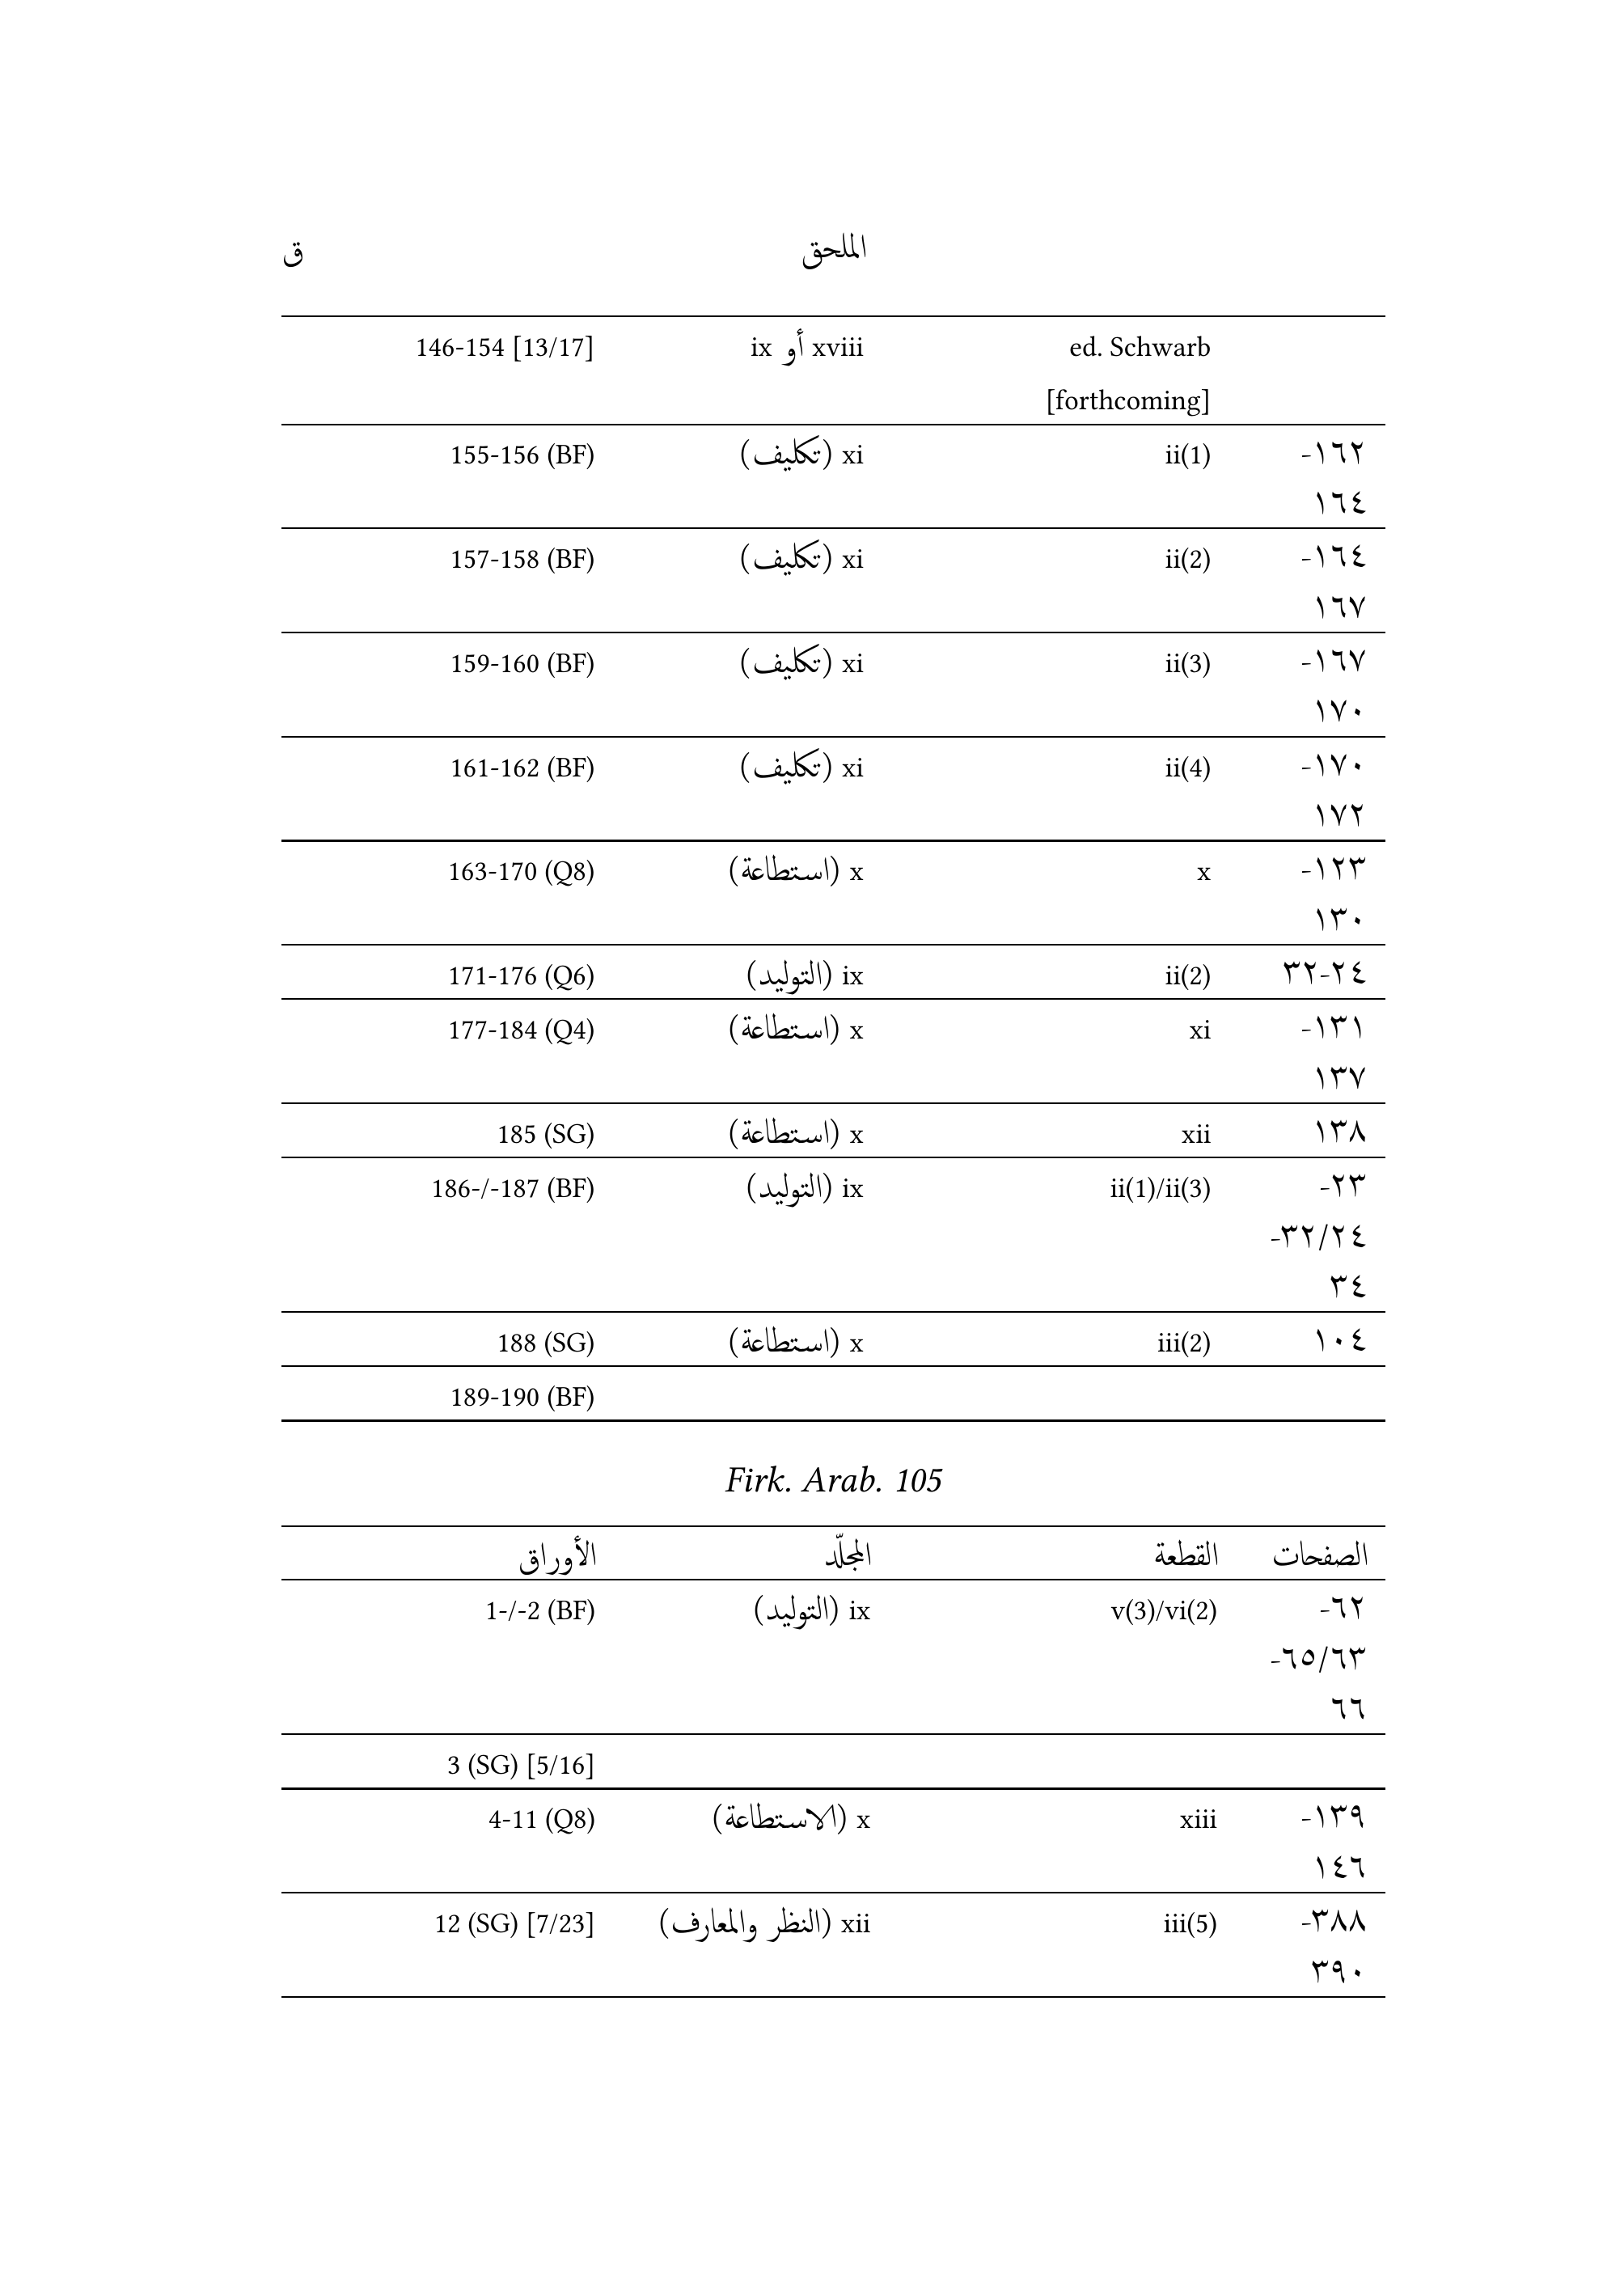 الملحق ق
ed. Schwarb xviii أو ix 146-154 [13/17]
[forthcoming]
١٦٢- ii(1) xi (تكليف) 155-156 (BF)
١٦٤
١٦٤- ii(2) xi (تكليف) 157-158 (BF)
١٦٧
١٦٧- ii(3) xi (تكليف) 159-160 (BF)
١٧٠
١٧٠- ii(4) xi (تكليف) 161-162 (BF)
١٧٢
١٢٣- x x (استطاعة) 163-170 (Q8)
١٣٠
٢٤-٣٢ ii(2) ix (التوليد) 171-176 (Q6)
١٣١- xi x (استطاعة) 177-184 (Q4)
١٣٧
١٣٨ xii x (استطاعة) 185 (SG)
٢٣- ii(1)/ii(3) ix (التوليد) 186-/-187 (BF)
٢٤/٣٢-
٣٤
١٠٤ iii(2) x (استطاعة) 188 (SG)
189-190 (BF)
Firk. Arab. 105
الصفحات القطعة المجلّد الأوراق
٦٢- v(3)/vi(2) ix (التوليد) 1-/-2 (BF)
٦٣/٦٥-
٦٦
3 (SG) [5/16]
١٣٩- xiii x (الاستطاعة) 4-11 (Q8)
١٤٦
٣٨٨- iii(5) xii (النظر والمعارف) 12 (SG) [7/23]
٣٩٠